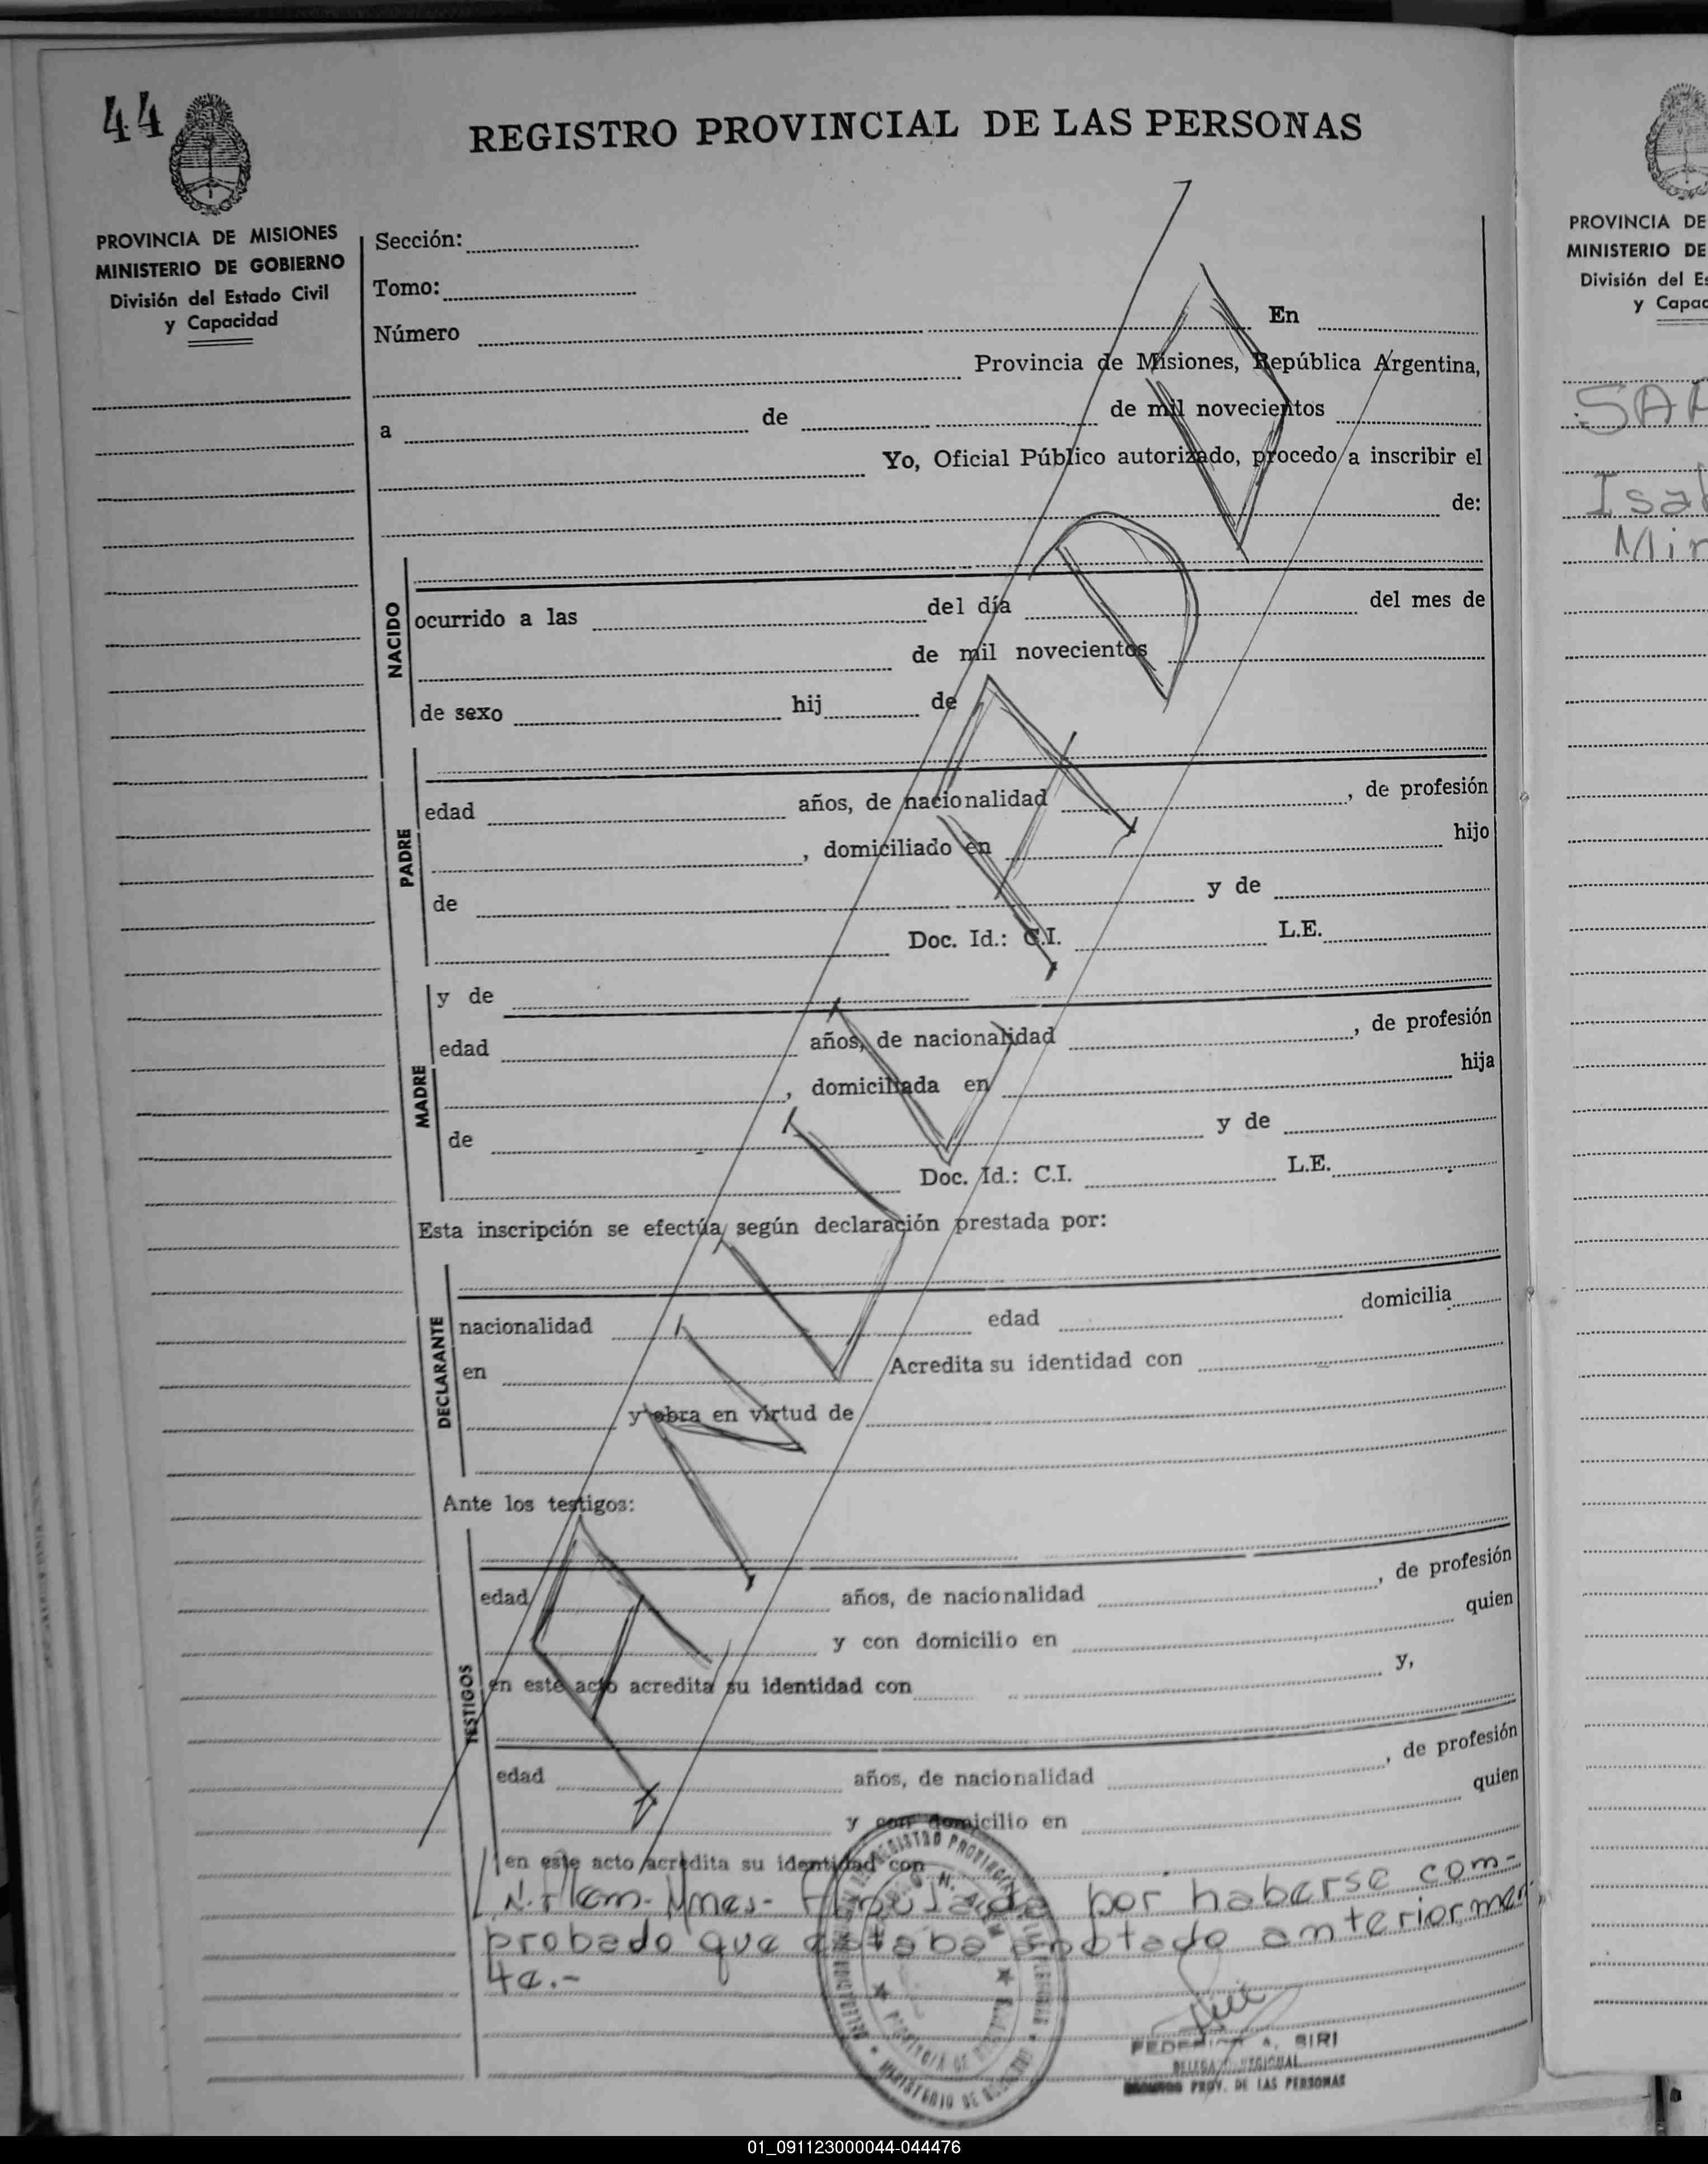 44
REGISTRO PROVINCIAL DE LAS PERSONAS
PROVINCIA DE MISIONES
MINISTERIO DE GOBIERNO
División del Estado Civil
y Capacidad
Sección:
Tomo:
Número En
Provincia de Misiones, República Argentina,
a de de mil novecientos
Yo, Oficial Público autorizado, procedo a inscribir el
de:
NACIDO
ocurrido a las del día del mes de
de mil novecientos
de sexo hij de
PADRE
edad años, de nacionalidad , de profesión
, domiciliado en hijo
de y de
Doc. Id.: C.I. L.E.
MADRE
y de
edad años, de nacionalidad , de profesión
, domiciliada en hija
de y de
Doc. Id.: C.I. L.E.
Esta inscripción se efectúa, según declaración prestada por:
DECLARANTE
nacionalidad edad domicilia
en Acredita su identidad con
y obra en virtud de
Ante los testigos:
TESTIGOS
edad años, de nacionalidad , de profesión
y con domicilio en quien
en este acto acredita su identidad con y,
edad años, de nacionalidad , de profesión
y con domicilio en quien
en este acto acredita su identidad con
ANULADO
por haberse com-
probado que estaba anotado anteriormen
te.-
A. SIRI
PROV. DE LAS PERSONAS
PROVINCIA DE
MINISTERIO DE
División del Es
y Capac
SAR
Isab
Mir
01_091123000044-044476